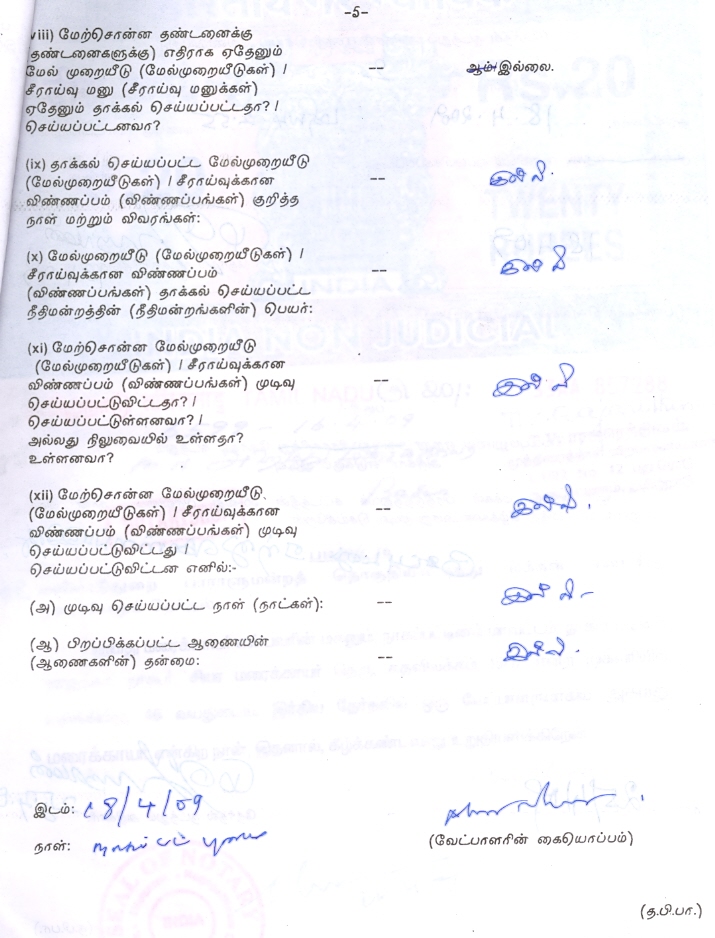 -5-
viii) மேற்சொன்ன தண்டனைக்கு
தண்டனைகளுக்கு) எதிராக ஏதேனும்
மேல் முறையீடு (மேல்முறையீடுகள்) / -- ஆம்/இல்லை.
சீராய்வு மனு (சீராய்வு மனுக்கள்)
ஏதேனும் தாக்கல் செய்யப்பட்டதா? /
செய்யப்பட்டனவா?
(ix) தாக்கல் செய்யப்பட்ட மேல்முறையீடு
(மேல்முறையீடுகள்) / சீராய்வுக்கான -- இல்லை.
விண்ணப்பம் (விண்ணப்பங்கள்) குறித்த
நாள் மற்றும் விவரங்கள்:
(x) மேல்முறையீடு (மேல்முறையீடுகள்) /
சீராய்வுக்கான விண்ணப்பம் -- இல்லை
(விண்ணப்பங்கள்) தாக்கல் செய்யப்பட்ட
நீதிமன்றத்தின் (நீதிமன்றங்களின்) பெயர்:
(xi) மேற்சொன்ன மேல்முறையீடு
(மேல்முறையீடுகள்) / சீராய்வுக்கான
விண்ணப்பம் (விண்ணப்பங்கள்) முடிவு -- இல்லை
செய்யப்பட்டுவிட்டதா? /
செய்யப்பட்டுள்ளனவா? /
அல்லது நிலுவையில் உள்ளதா?
உள்ளனவா?
(xii) மேற்சொன்ன மேல்முறையீடு
(மேல்முறையீடுகள்) / சீராய்வுக்கான -- இல்லை.
விண்ணப்பம் (விண்ணப்பங்கள்) முடிவு
செய்யப்பட்டுவிட்டது /
செய்யப்பட்டுவிட்டன எனில்:-
(அ) முடிவு செய்யப்பட்ட நாள் (நாட்கள்): -- இல்லை -
(ஆ) பிறப்பிக்கப்பட்ட ஆணையின்
(ஆணைகளின்) தன்மை: -- இல்லை.
இடம்: 18/4/09
நாள்:
(வேட்பாளரின் கையொப்பம்)
(த.பி.பா.)